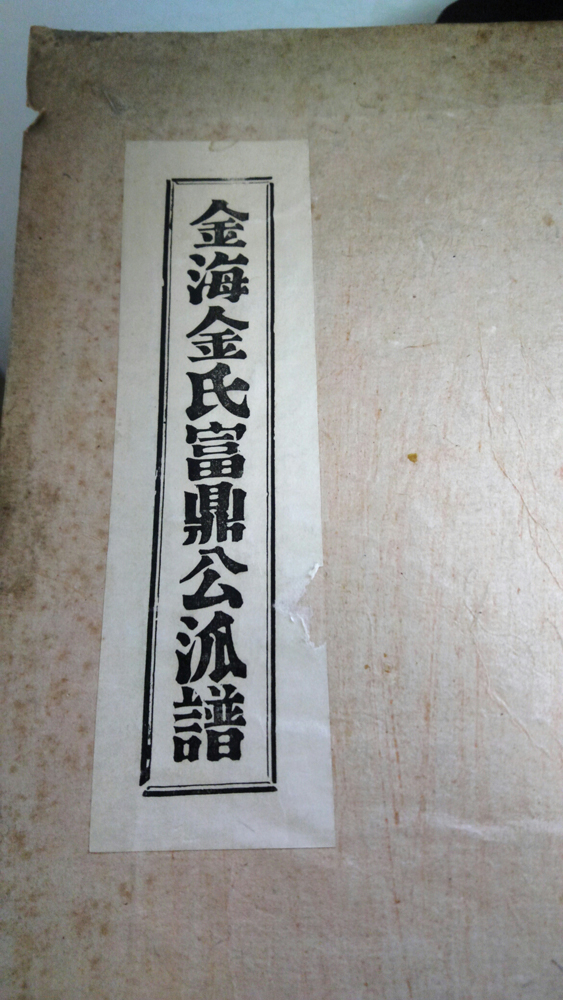 金海金氏富鼎公派譜